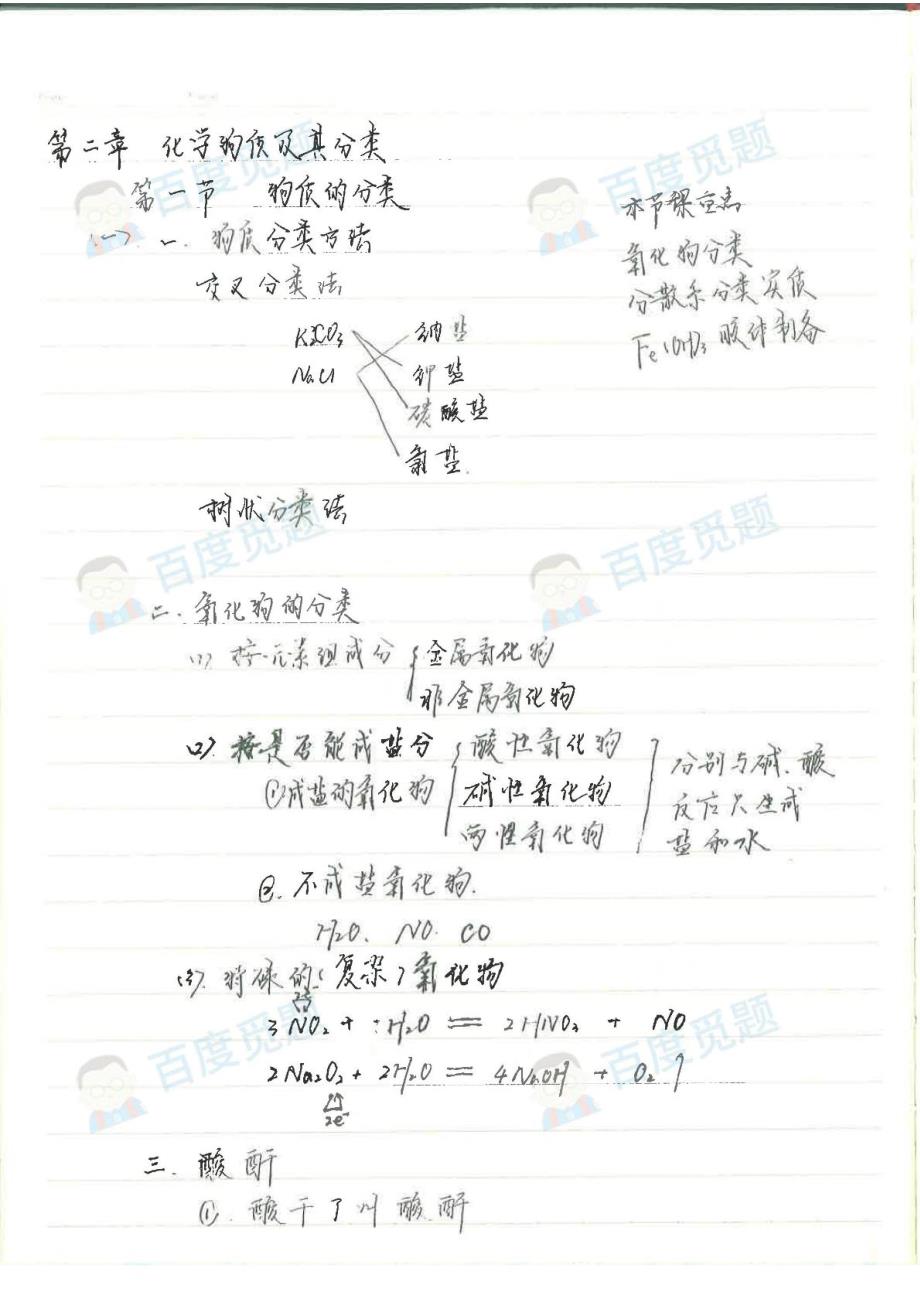 第二章 化学物质及其分类
第一节 物质的分类
(一) 一. 物质分类方法
交叉分类法
K2CO3 钠盐
NaCl 钾盐
碳酸盐
氯盐.
本节课重点
氧化物分类
分散系分类实质
Fe(OH)3 胶体制备
树状分类法
二. 氧化物的分类
(1) 按元素组成分 { 金属氧化物
非金属氧化物
(2) 按是否能成盐分
①成盐的氧化物 { 酸性氧化物
碱性氧化物
两性氧化物
分别与碱、酸
反应只生成
盐和水
②. 不成盐氧化物.
H2O、NO. CO
(3) 特殊的(复杂)氧化物
3NO2 + H2O == 2HNO3 + NO
2Na2O2 + 2H2O == 4NaOH + O2↑
2e-
三. 酸酐
①. 酸干了叫酸酐
百度觅题
百度觅题
百度觅题
百度觅题
百度觅题
百度觅题